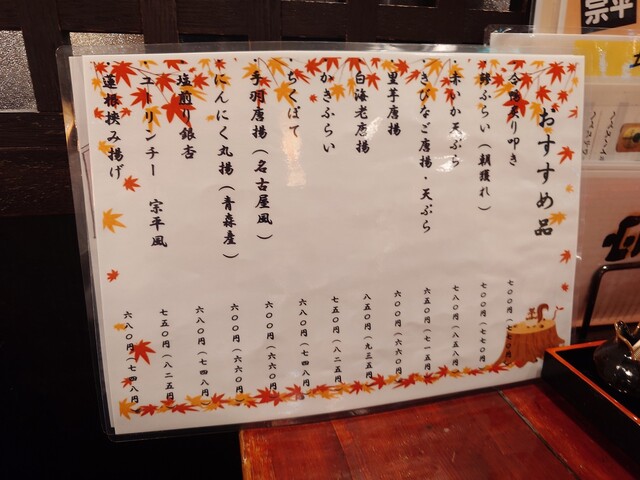 おすすめ品
・合鴨炙り叩き 七〇〇円(七七〇円)
・鯵ふらい(朝獲れ) 七〇〇円(七七〇円)
・赤いか天ぷら 七八〇円(八五八円)
・きびなご唐揚・天ぷら 六五〇円(七一五円)
・里芋唐揚 六〇〇円(六六〇円)
・白海老唐揚 八五〇円(九三五円)
・かきふらい 七五〇円(八二五円)
・ちくぽて 六八〇円(七四八円)
・手羽唐揚(名古屋風) 六〇〇円(六六〇円)
・にんにく丸揚(青森産) 六〇〇円(六六〇円)
・塩煎り銀杏 六八〇円(七四八円)
・ユーリンチー 宗平風 七五〇円(八二五円)
・蓮根挟み揚げ 六八〇円(七四八円)
宗平